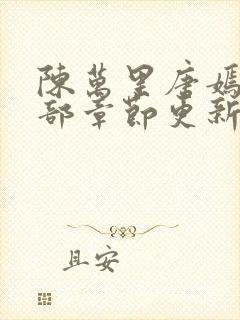 陳萬里唐嫣
部章節更新
且安